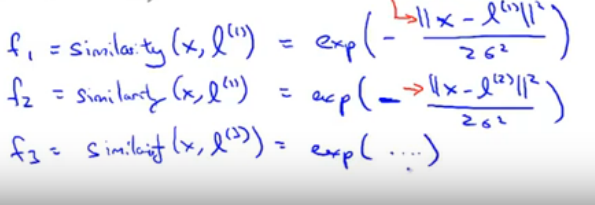 f₁ = similarity (x, l⁽¹⁾) = exp(- ||x - l⁽¹⁾||² / 2σ²)
f₂ = similarity (x, l⁽¹⁾) = exp(- ||x - l⁽²⁾||² / 2σ²)
f₃ = similarity (x, l⁽³⁾) = exp( ....)